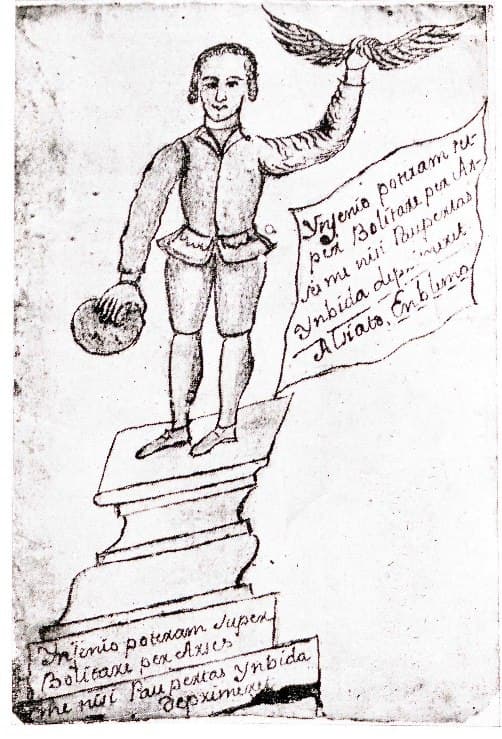 Ynjenio poteram su-
per Bolitare per Ar-
ses me nisi Paupertas
Ynbida deprimeret
Alciato. Emblema
Ynjenio poteram super
Bolitare per Arses
me nisi Paupertas Ynbida
deprimeret